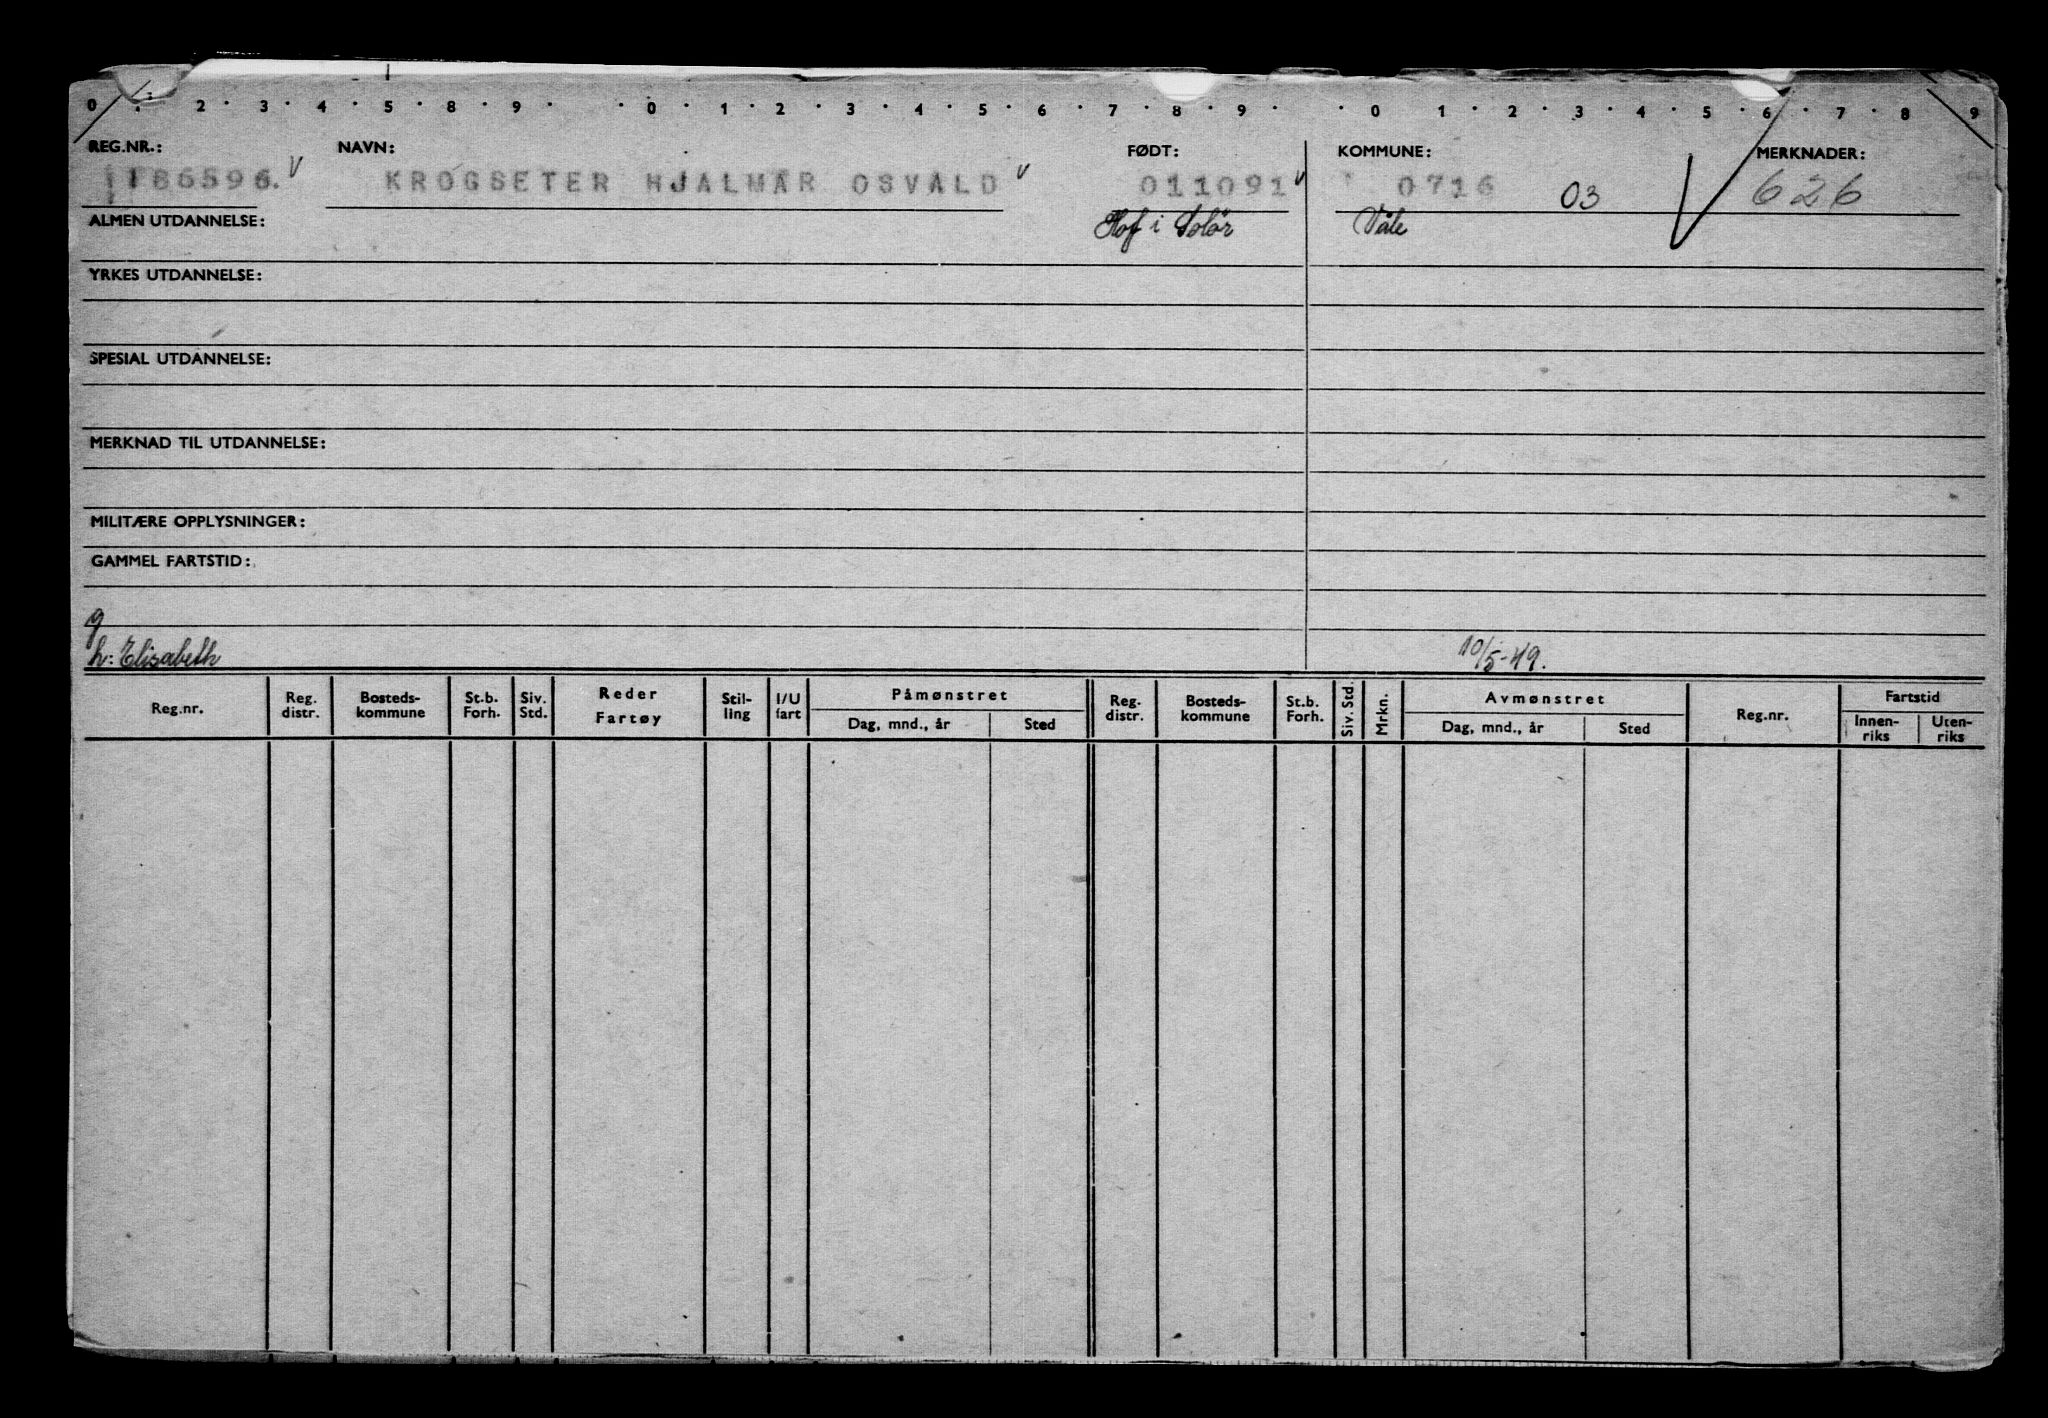 0 . 2 . 3 . 4 . 5 . 8 . 9 . . 0 . 1 . 2 . 3 . 4 . 5 . 6 . 7 . 8 . 9 . 0 . 1 . 2 . 3 . 4 . 5 . 6 . 7 . 8 . 9
REG.NR.: NAVN: FØDT: KOMMUNE: MERKNADER:
186596. KROGSETER HJALMAR OSVALD 011091 0716 03 626
ALMEN UTDANNELSE: Hof i Solør Våle
YRKES UTDANNELSE:
SPESIAL UTDANNELSE:
MERKNAD TIL UTDANNELSE:
MILITÆRE OPPLYSNINGER:
GAMMEL FARTSTID:
g
h: Elisabeth 10/5-49.
Reg.nr. Reg. distr. Bosteds-kommune St.b. Forh. Siv. Std. Reder Fartøy Stil-ling I/U fart Påmønstret Dag, mnd., år Sted Reg. distr. Bosteds-kommune St.b. Forh. Siv. Std. Mrkn. Avmønstret Dag, mnd., år Sted Reg.nr. Fartstid Innen-riks Uten-riks